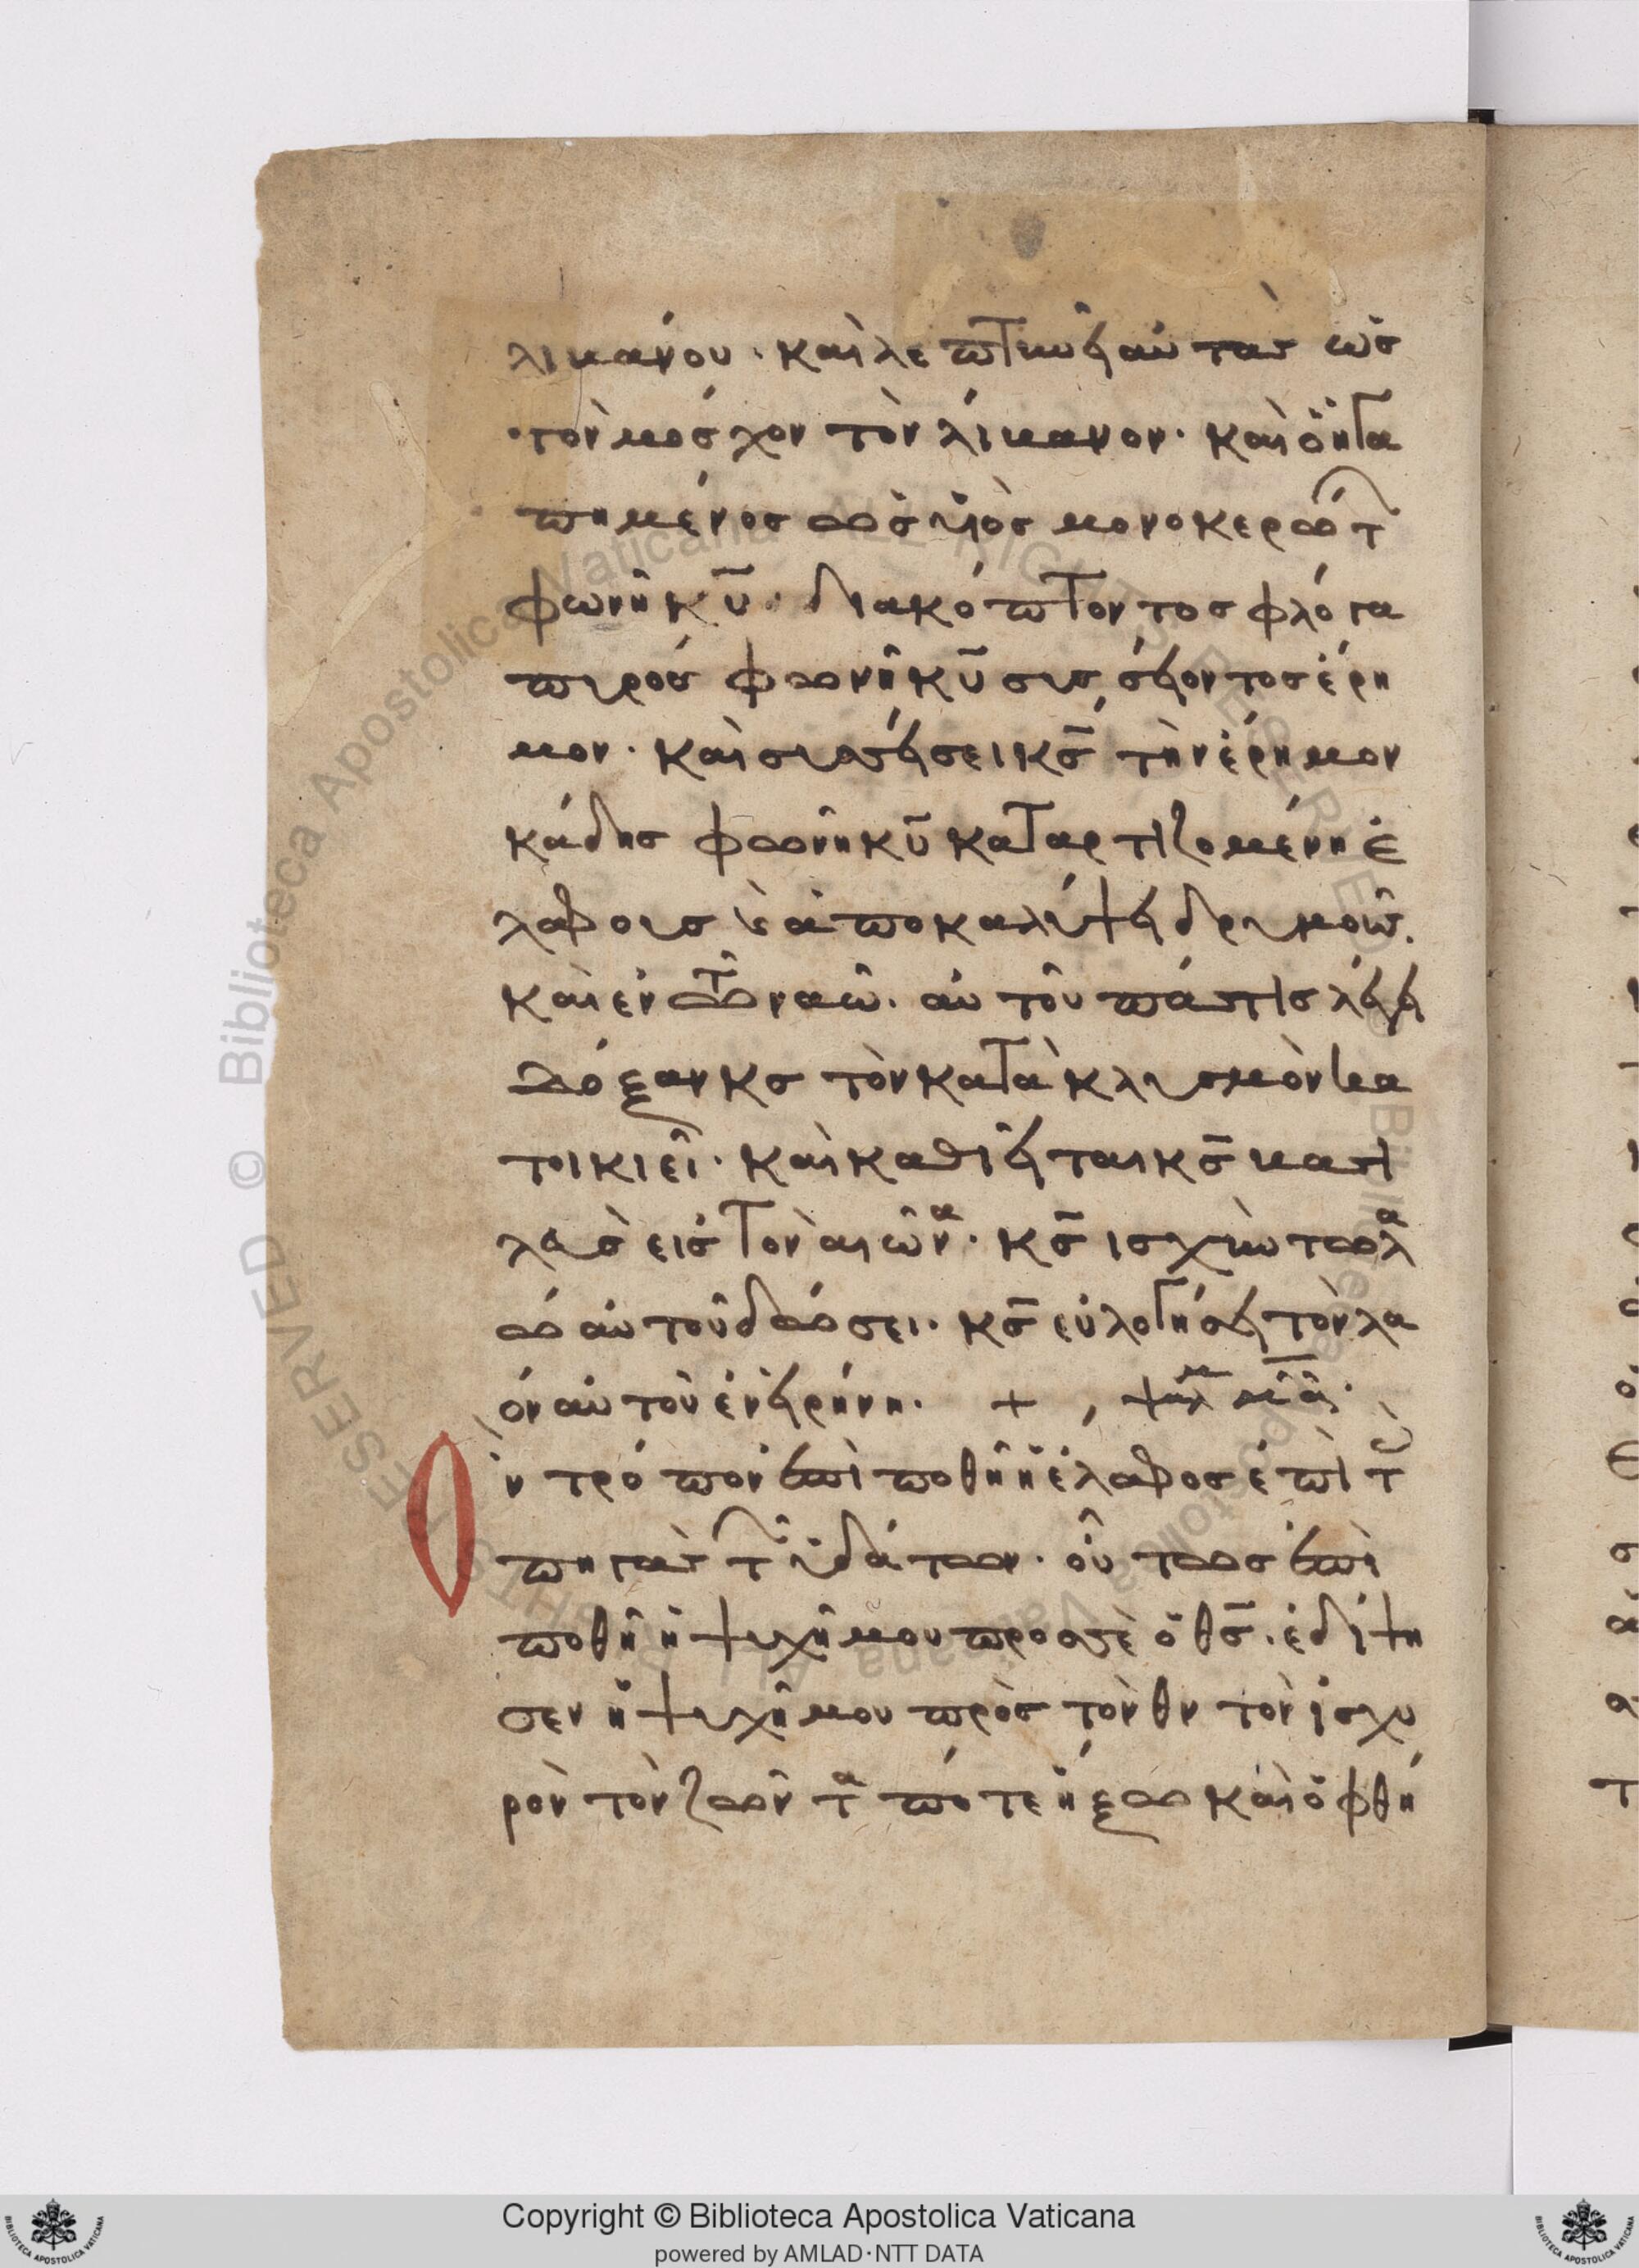 λιβάνου· καὶ λεπτυνεῖ αὐτὰς ὡς
τὸν μόσχον τὸν λίβανον· καὶ ὁ ἠγα
πημένος ὡς υἱὸς μονοκερώτ
φωνὴ κ̅υ̅· διακόπτοντος φλόγα
πυρός φωνὴ κ̅υ̅ συσσείοντος ἔρη
μον· καὶ συσσείσει κ̅ς̅ τὴν ἔρημον
κάδης φωνὴ κ̅υ̅ καταρτιζομένη ἐ
λάφους καὶ ἀποκαλύψει δρυμούς.
καὶ ἐν τῶ ναῶ· αὐτοῦ πάς τις λέγει
δόξαν κς τὸν κατὰκλυσμὸν κα
τοικιεῖ· καὶ καθιεῖται κ̅ς̅ βασι
λεὺς εἰς τὸν αἰῶνα· κ̅ς̅ ισχὺν τῶ λα
ῶ αὐτοῦ δώσει· κ̅ς̅ εὐλογήσει τὸν λα
όν αὐτοῦ ἐν εἰρήνη· + , ψαλ μ̅α̅·
Ὃν τρόπον ἐπιποθῆ ἡ ἔλαφος ἐπὶ τ
πηγὰς τ ὑδάτων· οὕτως ἐπι
ποθῆ ἡ ψυχῆ μου προσσὲ ὁ θ̅ς̅· ἐδίψη
σεν ἡ ψυχῆ μου πρὸς τὸν θν τὸν ἰσχυ
ρὸν τὸν ζῶν τα πότε ἥξω καὶ ὀφθή
Copyright © Biblioteca Apostolica Vaticana
powered by AMLAD·NTT DATA